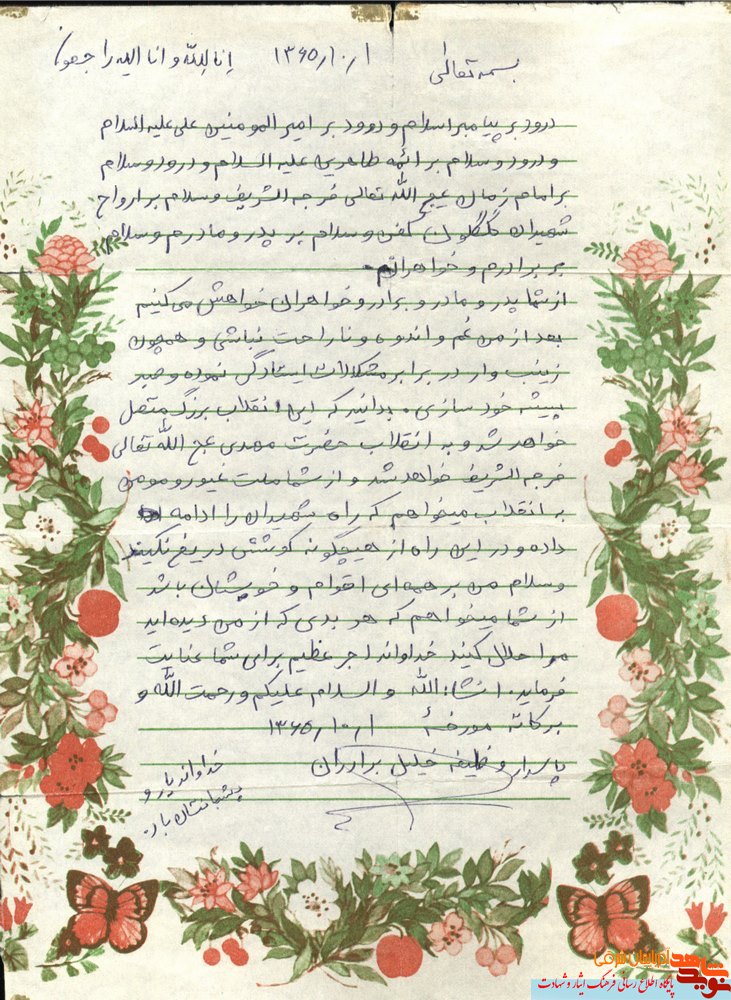 بسمه تعالی ۱۳۶۵/۱۰/۱ انا لله و انا الیه راجعون
درود بر پیامبر اسلام و درود بر امیر المومنین علی علیه السلام
و درود و سلام بر ائمه طاهرین علیه السلام و درود و سلام
بر امام زمان عج الله تعالی فرجه الشریف و سلام بر ارواح
شهیدان گلگون کفن و سلام بر پدر و مادرم و سلام
بر برادرم و خواهرانم
از شما پدر و مادر و برادر و خواهران خواهش می‌کنیم
بعد از من غم و اندوه و ناراحت نباشی و همچون
زینب وار در برابر مشکلات ایستادگی نموده و صبر
پیشه خود سازی. بدانید که این انقلاب بزرگ متصل
خواهد شد و به انقلاب حضرت مهدی عج الله تعالی
فرجه الشریف خواهد شد و از شما ملت غیور و مومن
به انقلاب میخواهم که راه شهیدان را ادامه
داده و در این راه از هیچگونه کوشش دریغ نکنید
وسلام من بر همه‌ای اقوام و خویشان باشد
از شما میخواهم که هر بدی که از من دیده اید
مرا حلال کنید خداوند اجر عظیم برای شما عنایت
فرماید. انشاءالله والسلام علیکم ورحمت الله و
برکاته مورخهٔ ۱۳۶۵/۱۰/۱
پاسدار وظیفه خلیل برادران
خداوند یار و
پشیبانتان باد.
نوید شاهد آذربایجان شرقی
پایگاه اطلاع رسانی فرهنگ ایثار و شهادت